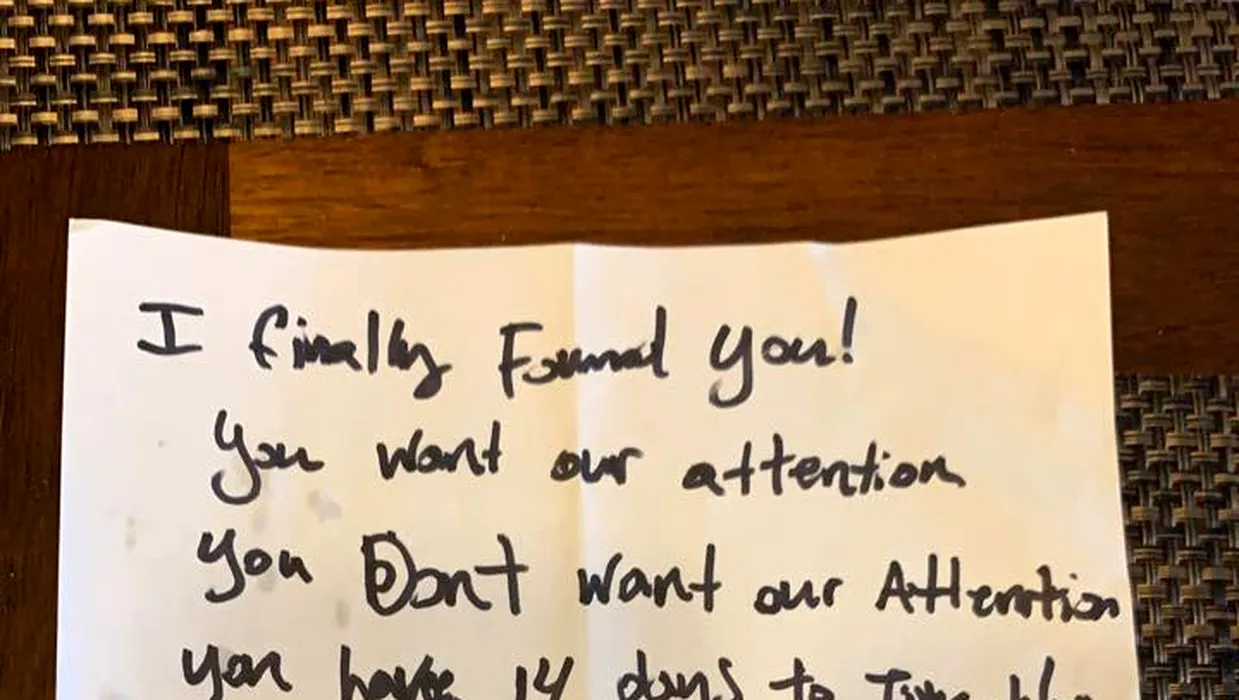 I finally Found you!
you want our attention
you Dont want our Attention
you have 14 days to